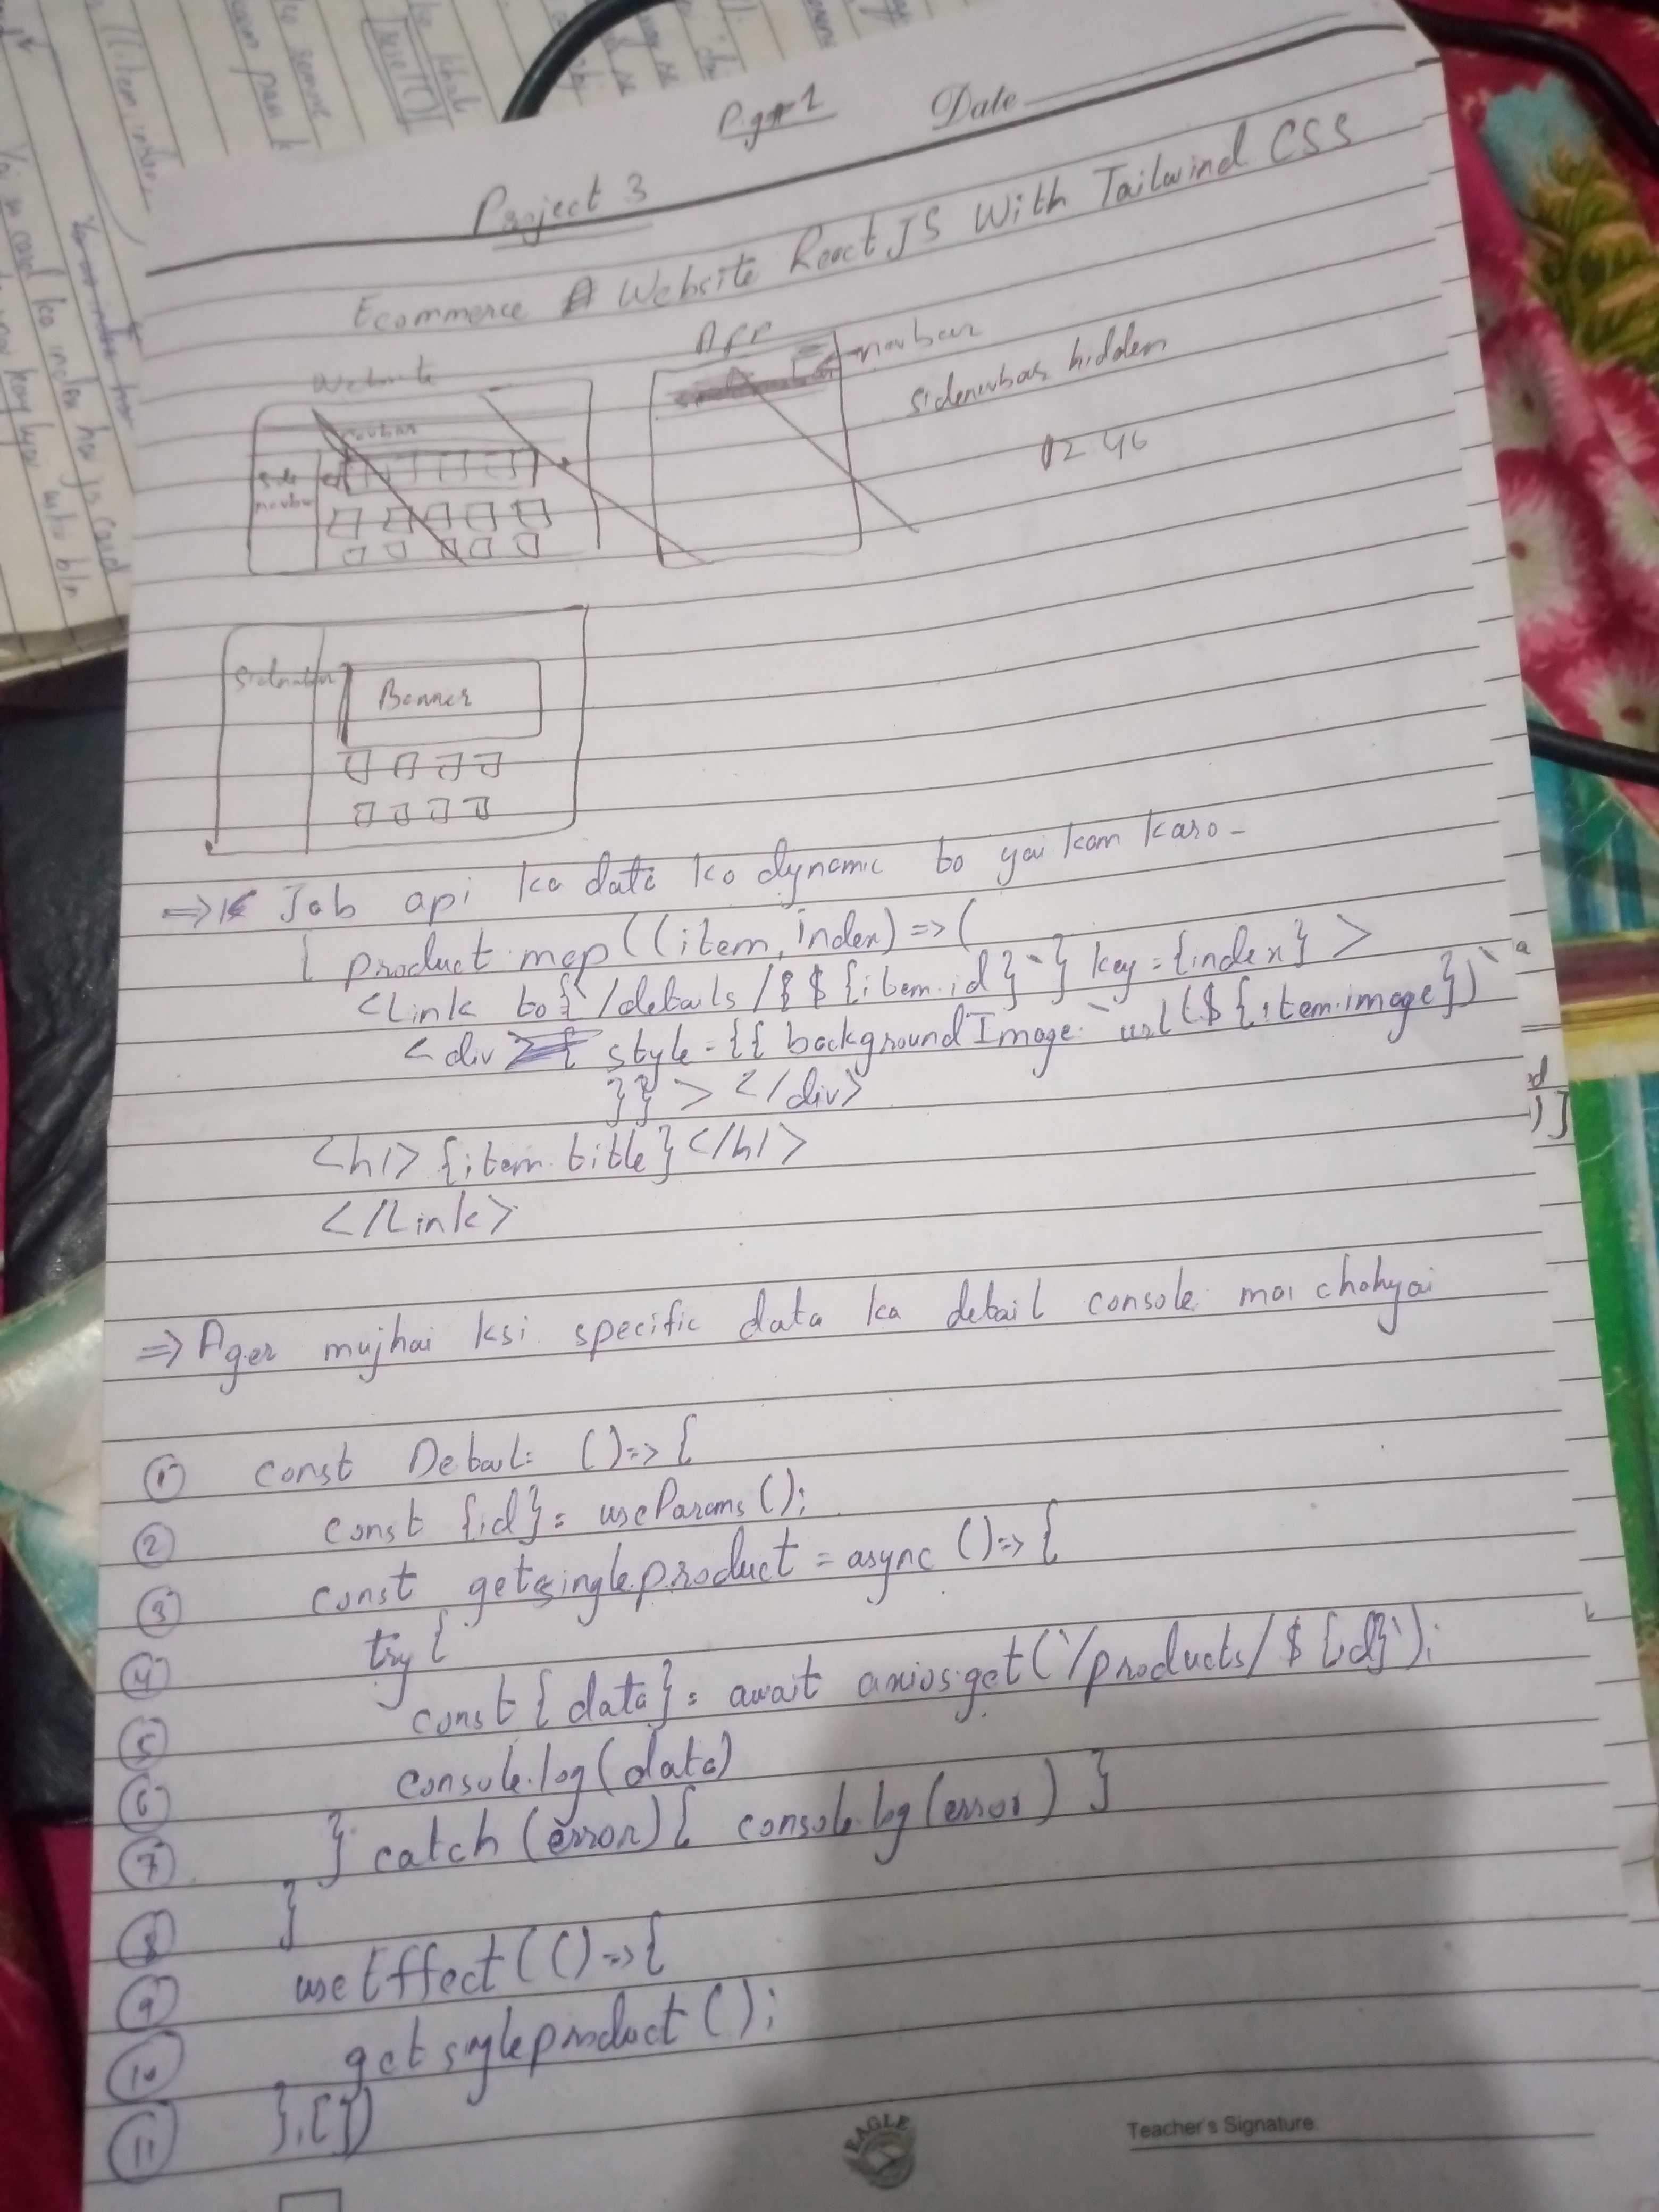 P.g# 1
Date
Project 3
Ecommerce Website React JS With Tailwind CSS
Website
App
navbar
sidenavbar hidden
navbar
Side
navbar
12 46
Sidenavbar
Banner
=> Jab api ka data ko dynamic to yai kam karo-
{ product.map((item, index) => (
<Link to{`/details/$${item.id}`} key={index} >
<div style={{ backgroundImage: `url(${item.image})`
}} > </div>
<h1> {item.title} </h1>
</Link>
=> Ager mujhai ksi specific data ka detail console mai chahyai
① const Detail= ()=> {
② const {id} = useParams();
③ const getsingleproduct = async ()=> {
④ try {
⑤ const { data } = await axios.get(`/products/${id}`);
⑥ console.log(data)
⑦ } catch (error) { console.log(error) }
⑧ }
⑨ useEffect(()=> {
⑩ getsingleproduct();
⑪ },[])
EAGLE
Teacher's Signature